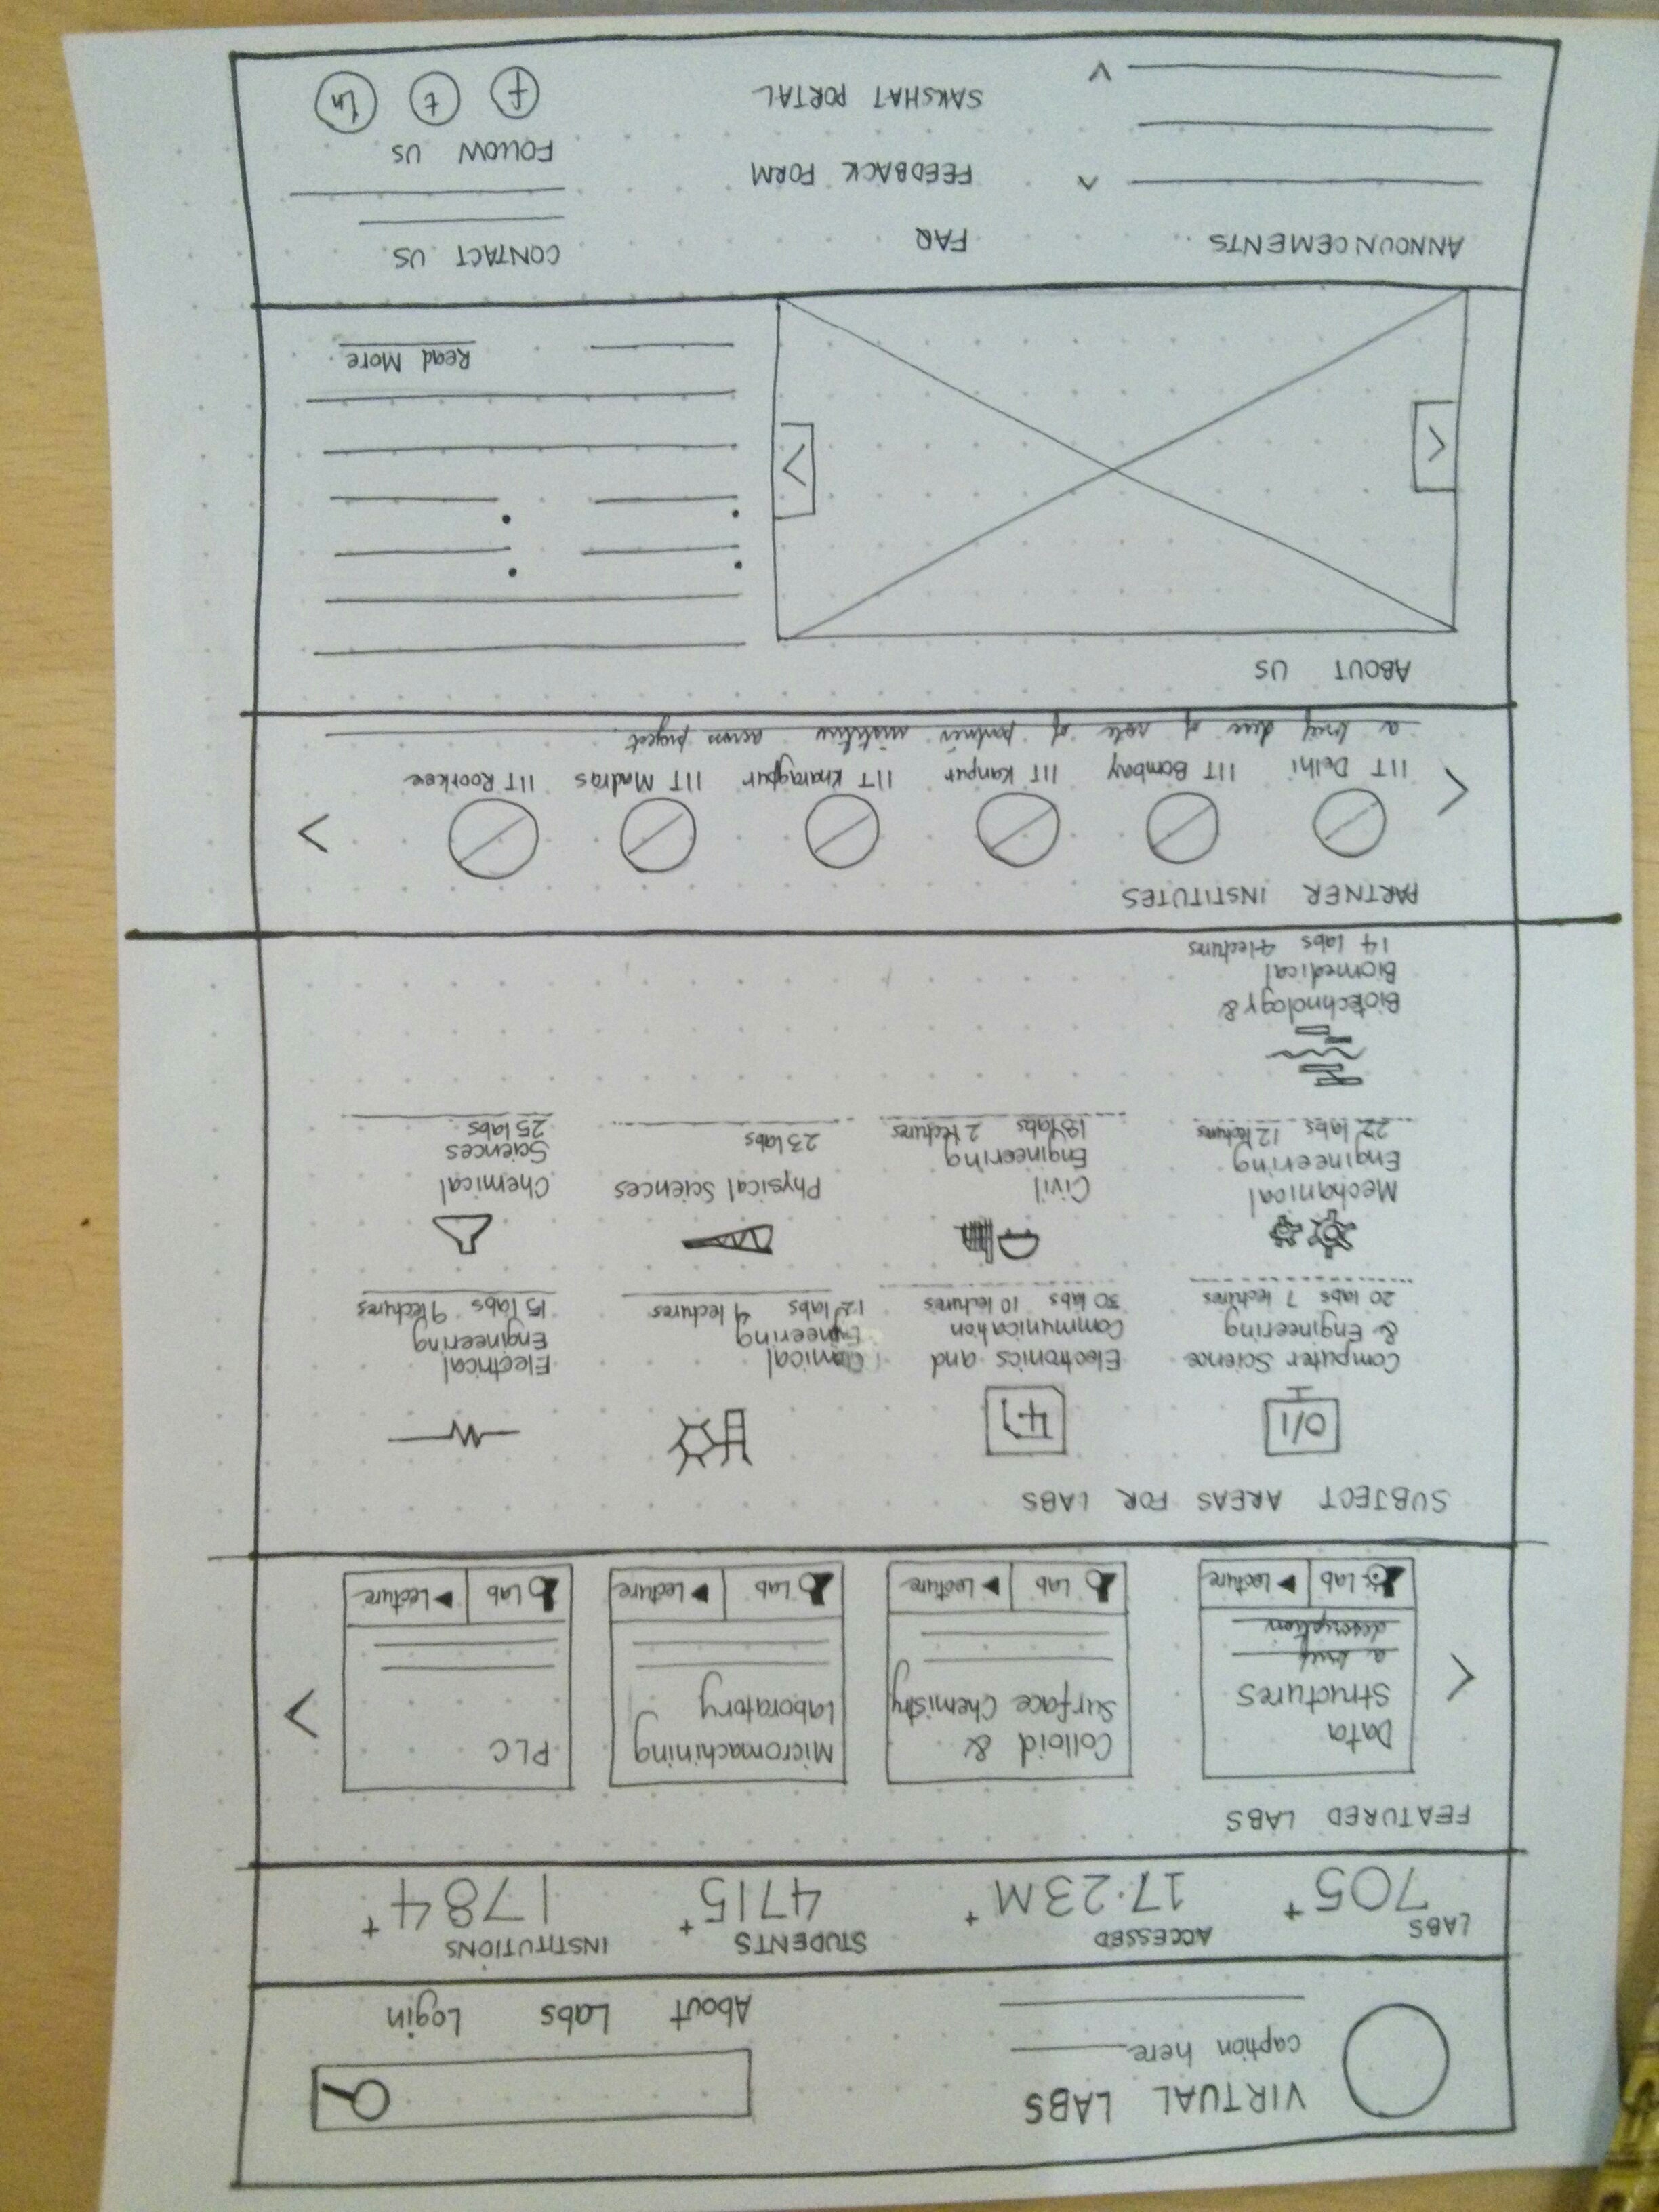 VIRTUAL LABS
caption here
About Labs Login
LABS
705+
ACCESSED
17.23M+
STUDENTS
4715+
INSTITUTIONS
1784+
FEATURED LABS
Data
Structures
a brief
description
Lab Lecture
Colloid &
Surface Chemistry
Lab Lecture
Micromachining
Laboratory
Lab Lecture
PLC
Lab Lecture
SUBJECT AREAS FOR LABS
0/1
Computer Science
& Engineering
20 labs 7 lectures
Electronics and
Communication
30 labs 10 lectures
Engineering
12 labs 4 lectures
Electrical
Engineering
15 labs 9 lectures
Mechanical
Engineering
22 labs 12 lectures
Civil
Engineering
18 labs 2 lectures
Physical Sciences
23 labs
Chemical
Sciences
25 labs
Biotechnology &
Biomedical
14 labs 4 lectures
PARTNER INSTITUTES
IIT Delhi
IIT Bombay
IIT Kanpur
IIT Kharagpur
IIT Madras
IIT Roorkee
a brief desc of role of partner institute across project
ABOUT US
Read More
ANNOUNCEMENTS
FAQ
FEEDBACK FORM
SAKSHAT PORTAL
CONTACT US
FOLLOW US
f t in